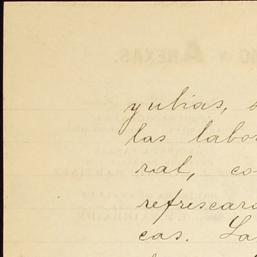 yubias,
las labo
ral, co
refrescar
cas. La